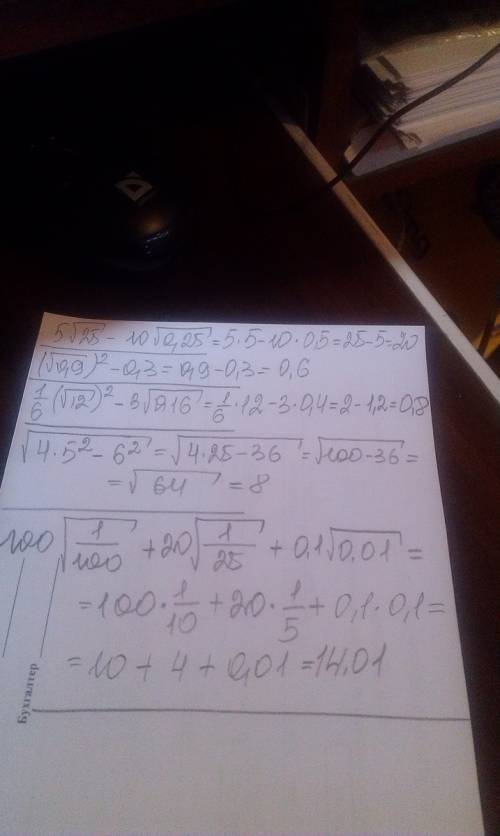 5√25 - 10√0,25 = 5·5-10·0,5=25-5=20
(√0,9)² - 0,3 = 0,9 - 0,3 = 0,6
1/6 (√12)² - 3√0,16 = 1/6 · 12 - 3·0,4 = 2 - 1,2 = 0,8
√4·5² - 6² = √4·25 - 36 = √100 - 36 =
= √64 = 8
100√1/100 + 20√1/25 + 0,1√0,01 =
= 100 · 1/10 + 20 · 1/5 + 0,1·0,1 =
= 10 + 4 + 0,01 = 14,01
Бухгалтер